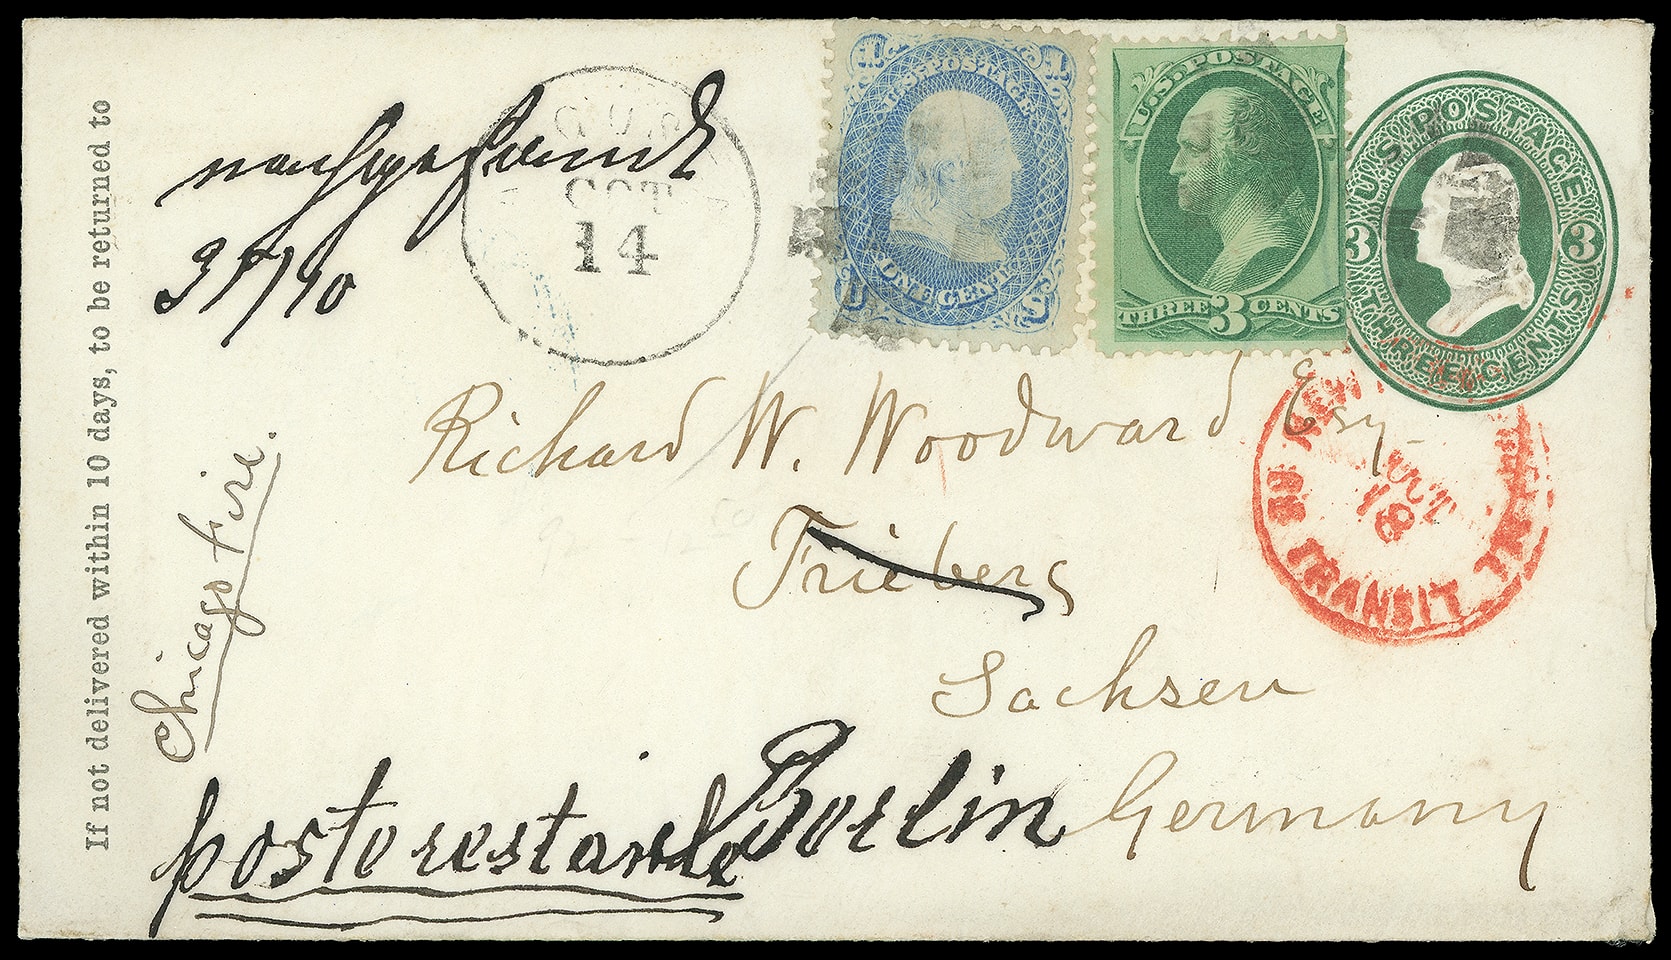 If not delivered within 10 days, to be returned to
nachgesandt
31/10
OCT
14
U.S. POSTAGE
1 1
ONE CENT
U S
U.S. POSTAGE
THREE 3 CENTS
U.S. POSTAGE
3 3
THREE CENTS
Richard W. Woodward Esq.
Frieberg
Sachsen
Germany
Chicago Fire.
poste restante Berlin
NEW
OCT
18
TRANSIT